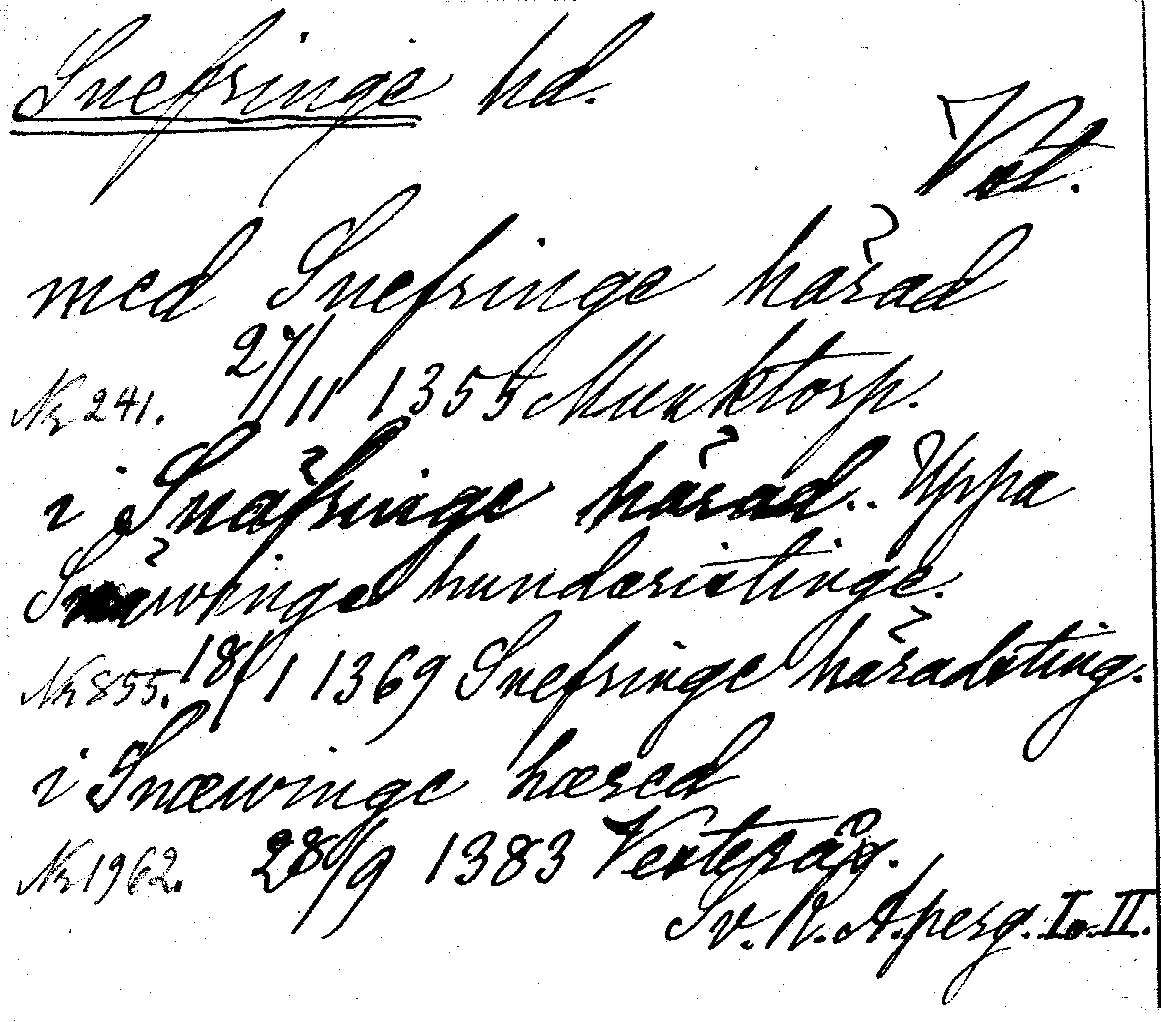 Snefringe hd.
Vst.
med Snefringe härad
Nr 241. 27/11 1355 Munktorp.
i Snäfringe härad.. Uppa
Snäwinge hundæristinge.
Nr 855. 18/1 1369 Snefringe häradsting.
i Snæwinge hæred
Nr 1962. 28/9 1383 Vesterås.
Sv. R. A. perg. I o. II.